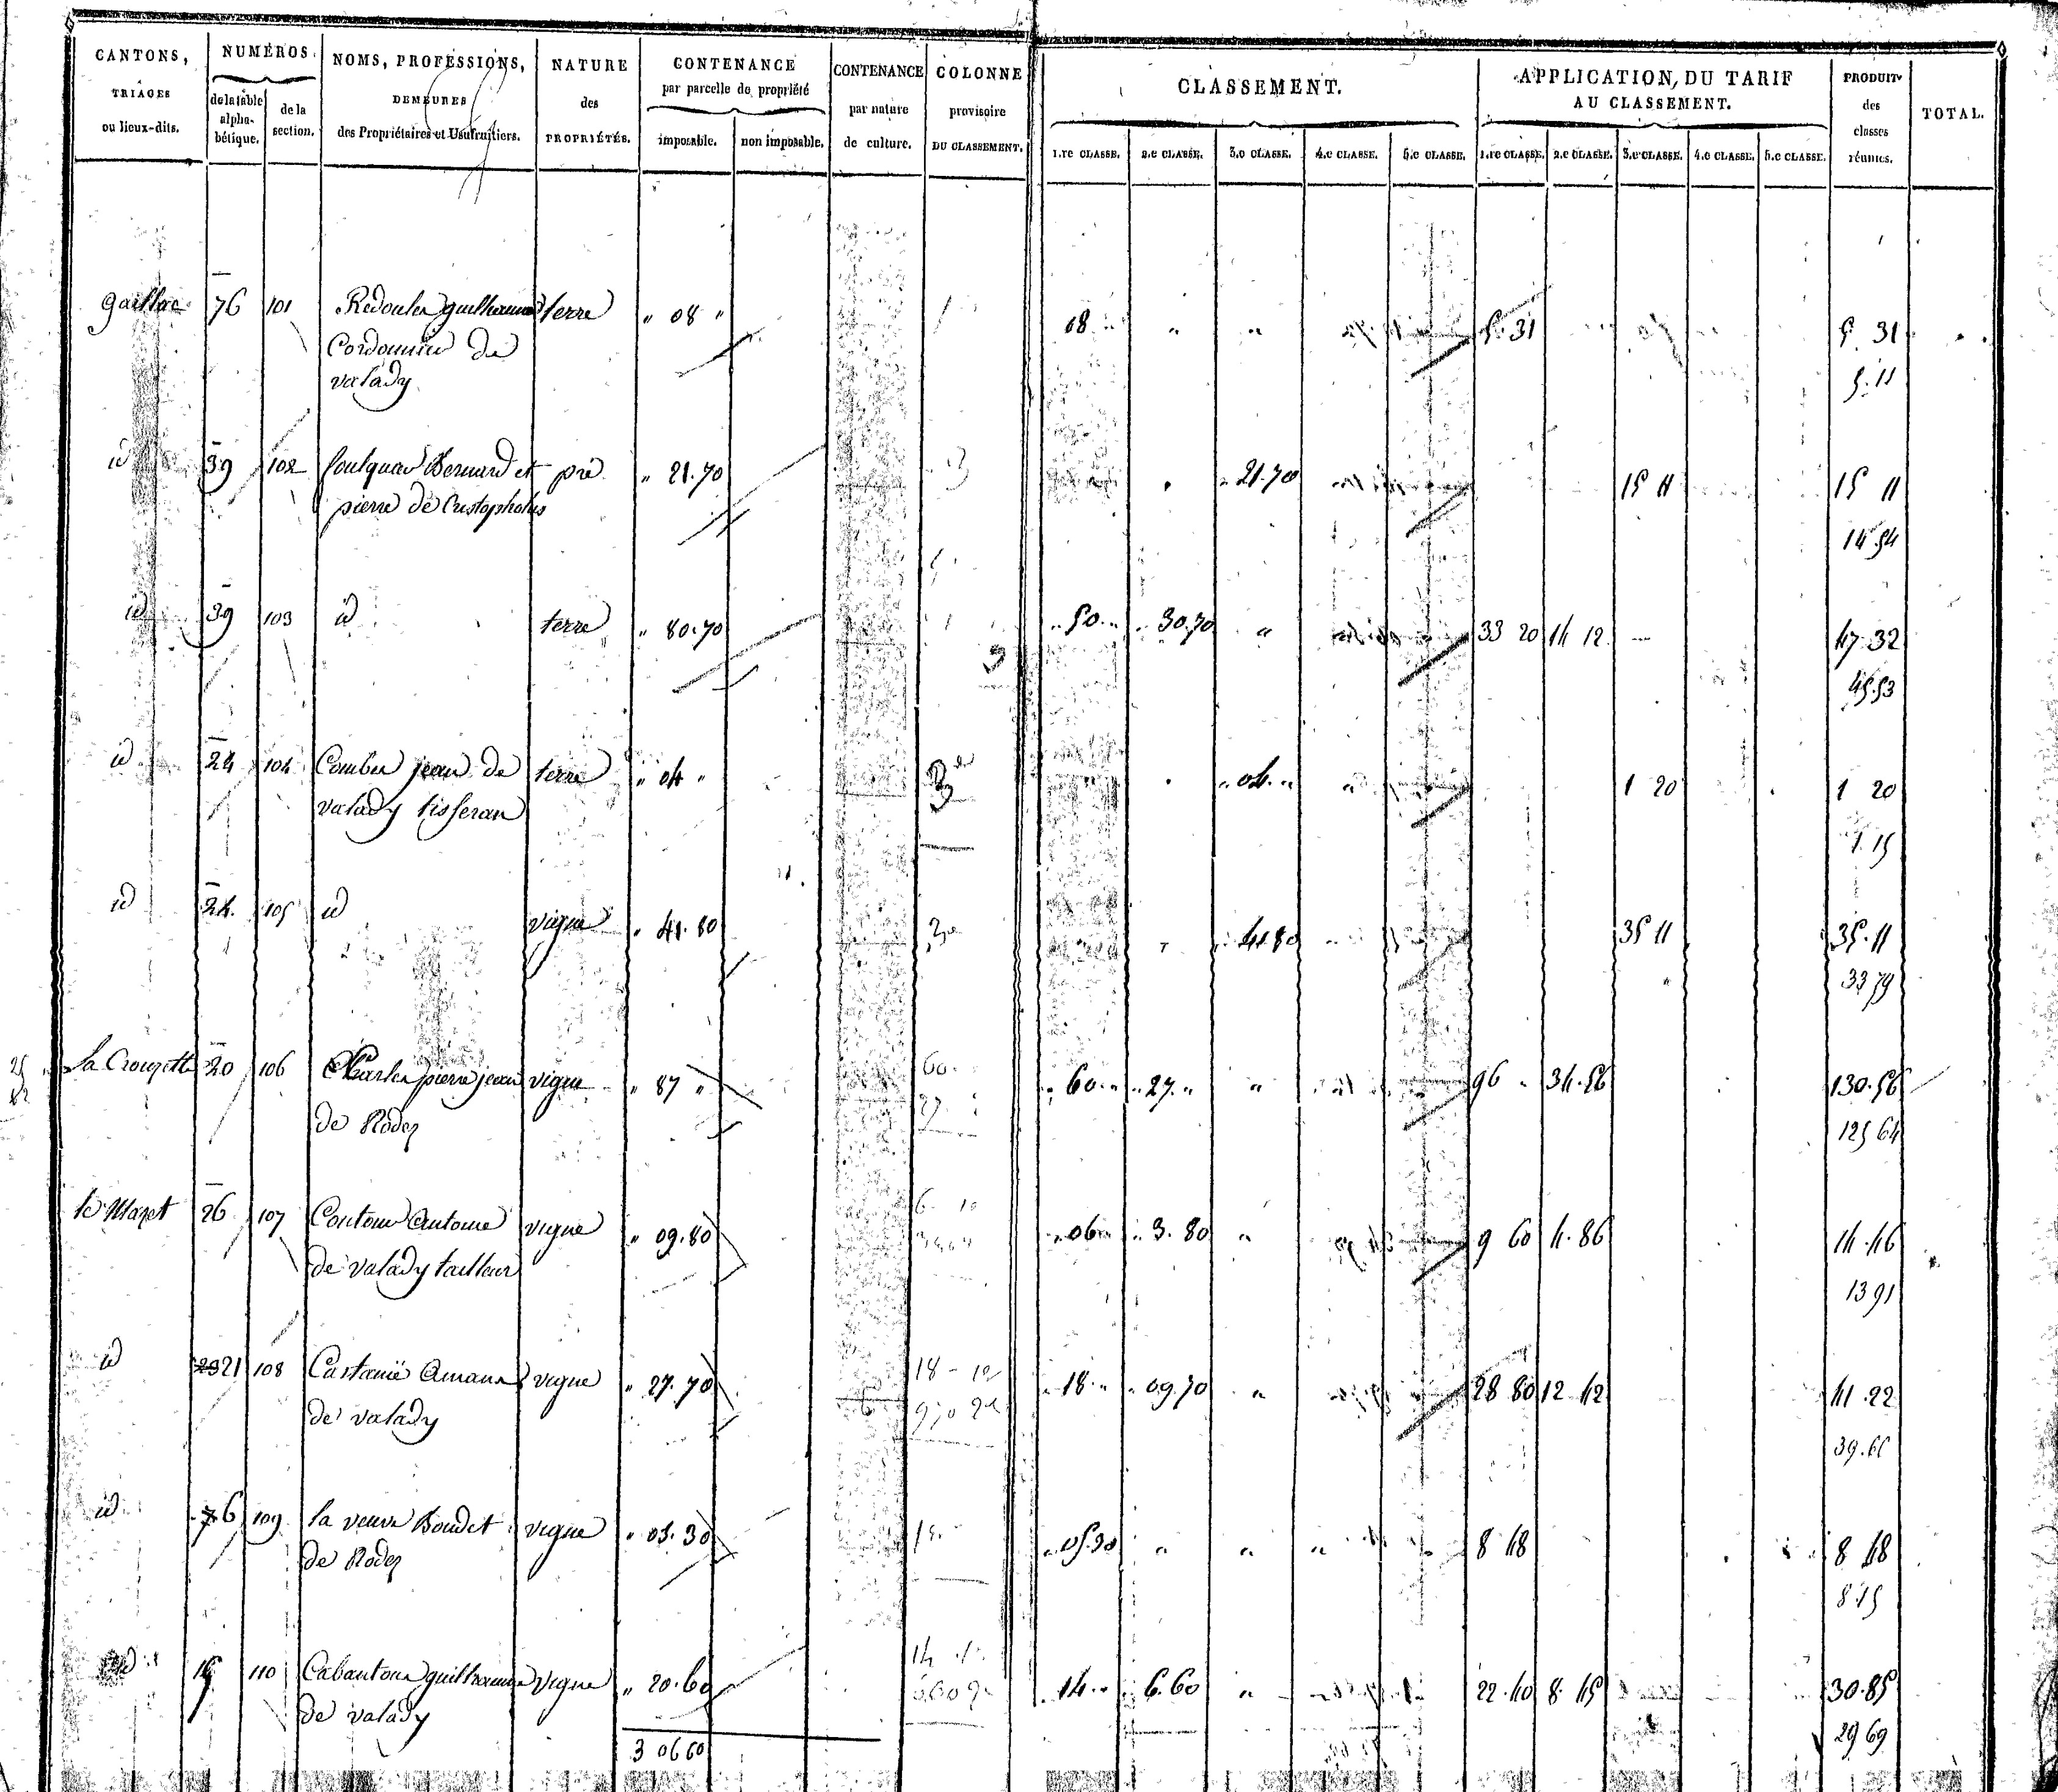 CANTONS, TRIAGES ou lieux-dits. | NUMÉROS. de la table alphabétique. | de la section. | NOMS, PROFESSIONS, DEMEURES des Propriétaires et Usufruitiers. | NATURE des PROPRIÉTÉS. | CONTENANCE par parcelle de propriété imposable. | non imposable. | CONTENANCE par nature de culture. | COLONNE provisoire DU CLASSEMENT. | CLASSEMENT. 1.re CLASSE. | 2.e CLASSE. | 3.e CLASSE. | 4.e CLASSE. | 5.e CLASSE. | APPLICATION, DU TARIF AU CLASSEMENT. 1.re CLASSE. | 2.e CLASSE. | 3.e CLASSE. | 4.e CLASSE. | 5.e CLASSE. | PRODUIT des classes réunies. | TOTAL.
gaillac 76 101 Redoules guilhaume terre " 08 " 08 " " " 5. 31 5. 31
Cordonnier de
valady 5.11
id 39 102 Bernard et pré " 21.70 21.70 15 11 15 11
pierre de Cristopholes 14.54
id 39 103 id terre " 80.70 50 " 30.70 " 33 20 14 12 47.32
45.53
id 24 104 Combes jean de terre " 04 " 3 04 " 1 20 1 20
valady tisseran 1.15
id 24. 105 id vigne " 41.80 41.80 35 11 35.11
33 79
la Crouzette 20 106 Charles pierre jean vigne " 87 " 60 60 " 27 " " 96 " 34.56 130.56
de Rodez 27 125 64
le Mazet 26 107 Coutous Antoine vigne " 09.80 06 " 3.80 " 9 60 4.86 14.46
de valady tailleur 13 91
id 21 108 Castanié Amans vigne " 27.70 18 18 " 09.70 " 28 80 12 42 41.22
de valady 39.66
id 76 109 la veuve Boudet vigne " 05.30 05.30 " " " 8 48 8 48
de Rodez 8.15
id 110 Cabantous guilhaume vigne " 20.60 14 14 " 6.60 " 22.40 8.45 30.85
de valady 29 69
3 06 60